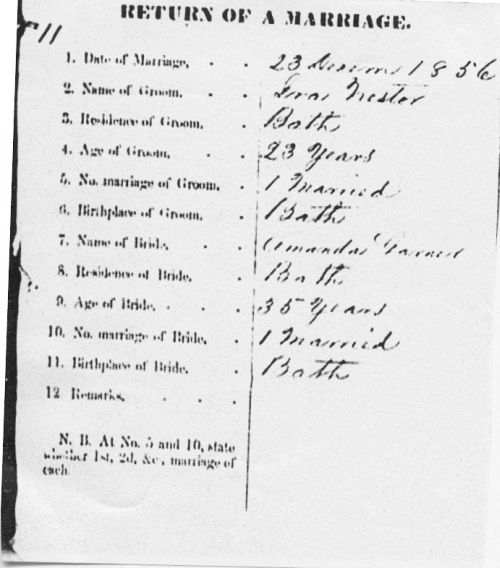 RETURN OF A MARRIAGE.
11
1. Date of Marriage, . . 23 1856
2. Name of Groom. . . Nestor
3. Residence of Groom, . Bath
4. Age of Groom, . . 23 Years
5. No. marriage of Groom. . 1 Married
6. Birthplace of Groom. . Bath
7. Name of Bride, . . Amanda
8. Residence of Bride. . Bath
9. Age of Bride. . . 35 Years
10. No. marriage of Bride, . 1 Married
11. Birthplace of Bride. . Bath
12 Remarks. . . .
N. B. At No. 5 and 10, state
whether 1st, 2d, &c., marriage of
each